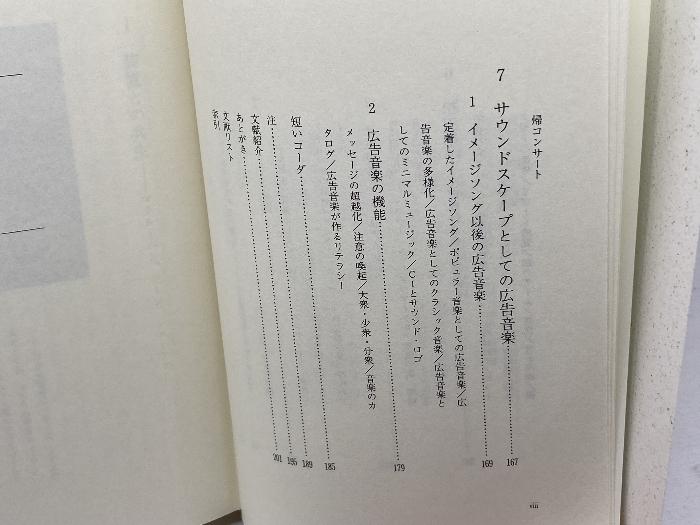 帰コンサート
7 サウンドスケープとしての広告音楽 167
1 イメージソング以後の広告音楽 169
定着したイメージソング／ポピュラー音楽としての広告音楽／広
告音楽の多様化／広告音楽としてのクラシック音楽／広告音楽と
してのミニマルミュージック／CIとサウンド・ロゴ
2 広告音楽の機能 179
メッセージの超越化／注意の喚起／大衆・少衆・分衆／音楽のカ
タログ／広告音楽が作るリテラシー
短いコーダ 185
注 189
文献紹介 195
あとがき 201
文献リスト
索引
viii